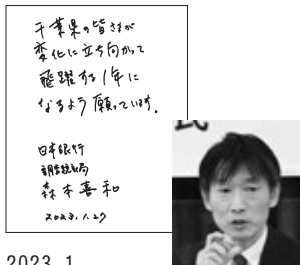 千葉県の皆さまが
変化に立ち向かって
飛躍する1年に
なるよう願っています。
日本銀行
調査統計局
森本喜和
2023.1.27
氏
2023 1